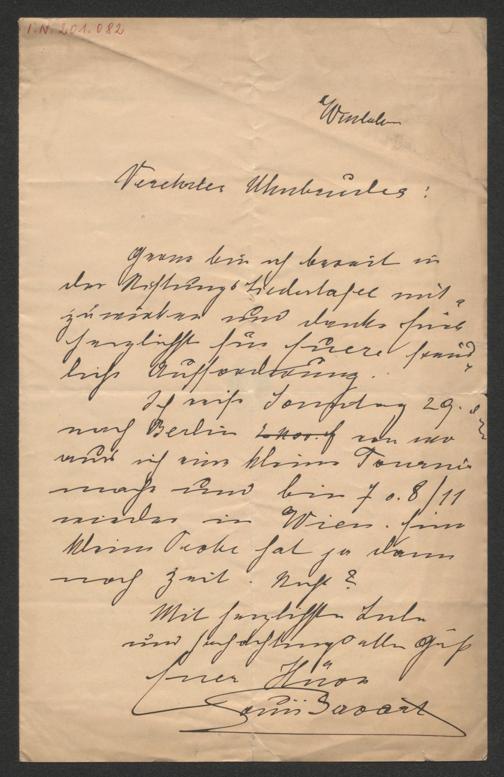 I.N. 201.082
Verehrter Uhubruder!
Gerne bin ich bereit in
der Stiftungsliedertafel mit-
zuwirken und danke für
herzlichst für Euere freund-
liche Aufforderung.
Ich reise Sonntag 29.
nach Berlin von wo
aus ich eine kleine Tournée
mache und bin 7 o. 8/11
wieder in Wien. Eine
kleine Probe hat ja dann
noch Zeit. Nicht?
Mit herzlichsten
und hochachtungsvollen Gruß
Euer
Louis Bavart